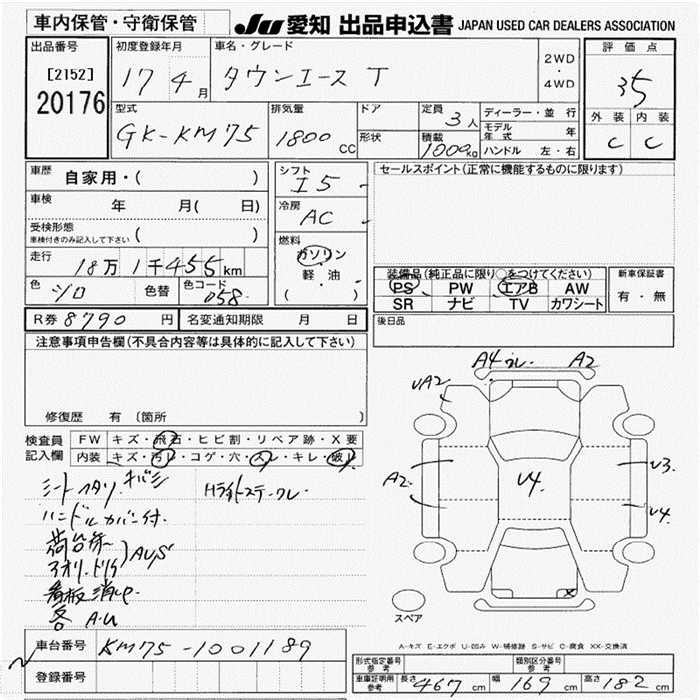 車内保管・守衛保管
JU 愛知 出品申込書 JAPAN USED CAR DEALERS ASSOCIATION
出品番号
[2152]
20176
初度登録年月
17 4月
車名・グレード
タウンエース T
2WD
・
4WD
評価点
35
外装 内装
C C
型式
GK-KM75
排気量
1800 CC
ドア
形状
定員 3人
積載 1000kg
ディーラー・並行
モデル年式 年
ハンドル 左・右
車歴 自家用・( )
車検 年 月(日)
受検形態
車検付きのみ記入して下さい ( )
走行 18万 1千455km
色 シロ 色替 色コード 058
R券 8790 円 名変通知期限 月 日
シフト I5
冷房 AC
燃料
ガソリン
軽・油
( )
セールスポイント(正常に機能するものに限ります)
装備品(純正品に限り○をつけてください)
PS PW エアB AW
SR ナビ TV カワシート
新車保証書
有・無
後日品
注意事項申告欄(不具合内容等は具体的に記入して下さい)
修復歴 有 〔箇所
検査員記入欄
FW キズ・飛石・ヒビ割・リペア跡・X要
内装 キズ・汚レ・コゲ・穴・スレ・キレ・破レ
ハンドルカバー付
看板消し
A4 A2
UA2
A2
U4
U3
U4
X
スペア
A-キズ E-エクボ U-凹み W-補修跡 S-サビ C-腐食 XX-交換済
車台番号 KM75-1001189
登録番号
形式指定番号 参考
類別区分番号 参考
車庫証明用 参考 長さ 467 cm 幅 169 cm 高さ 182 cm